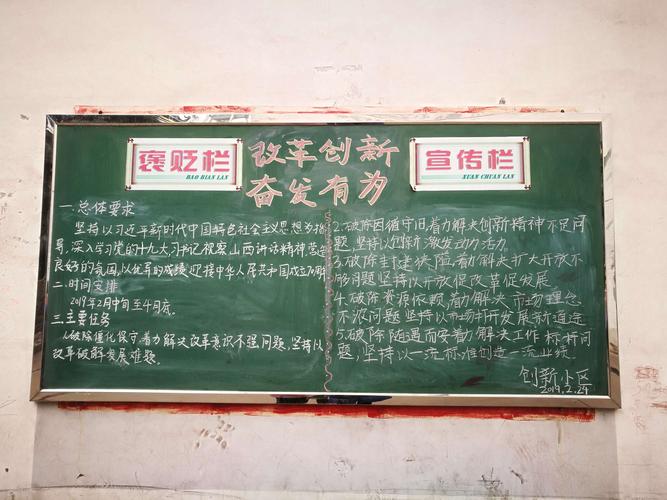 褒贬栏
BAO BIAN LAN
改革创新
奋发有为
宣传栏
XUAN CHUAN LAN
一.总体要求
坚持以习近平新时代中国特色社会主义思想为指
导,深入学习党的十九大,习书记视察山西讲话精神,营造
良好的氛围,以优异的成绩迎接中华人民共和国成立70周年
二.时间安排
2019年2月中旬至4月底。
三.主要任务
1.破除僵化保守,着力解决改革意识不强问题,坚持以
改革破解发展难题。
2.破除因循守旧,着力解决创新精神不足问
题,坚持以创新激发动力活力。
3.破除封闭狭隘,着力解决扩大开放不
够问题坚持以开放促改革促发展
4.破除资源依赖,着力解决市场理念
不浓问题坚持以市场开开发展新通途
5.破除随遇而安着力解决工作标杆问
题,坚持以一流标准创造一流业绩.
创新小区
2019.2.29